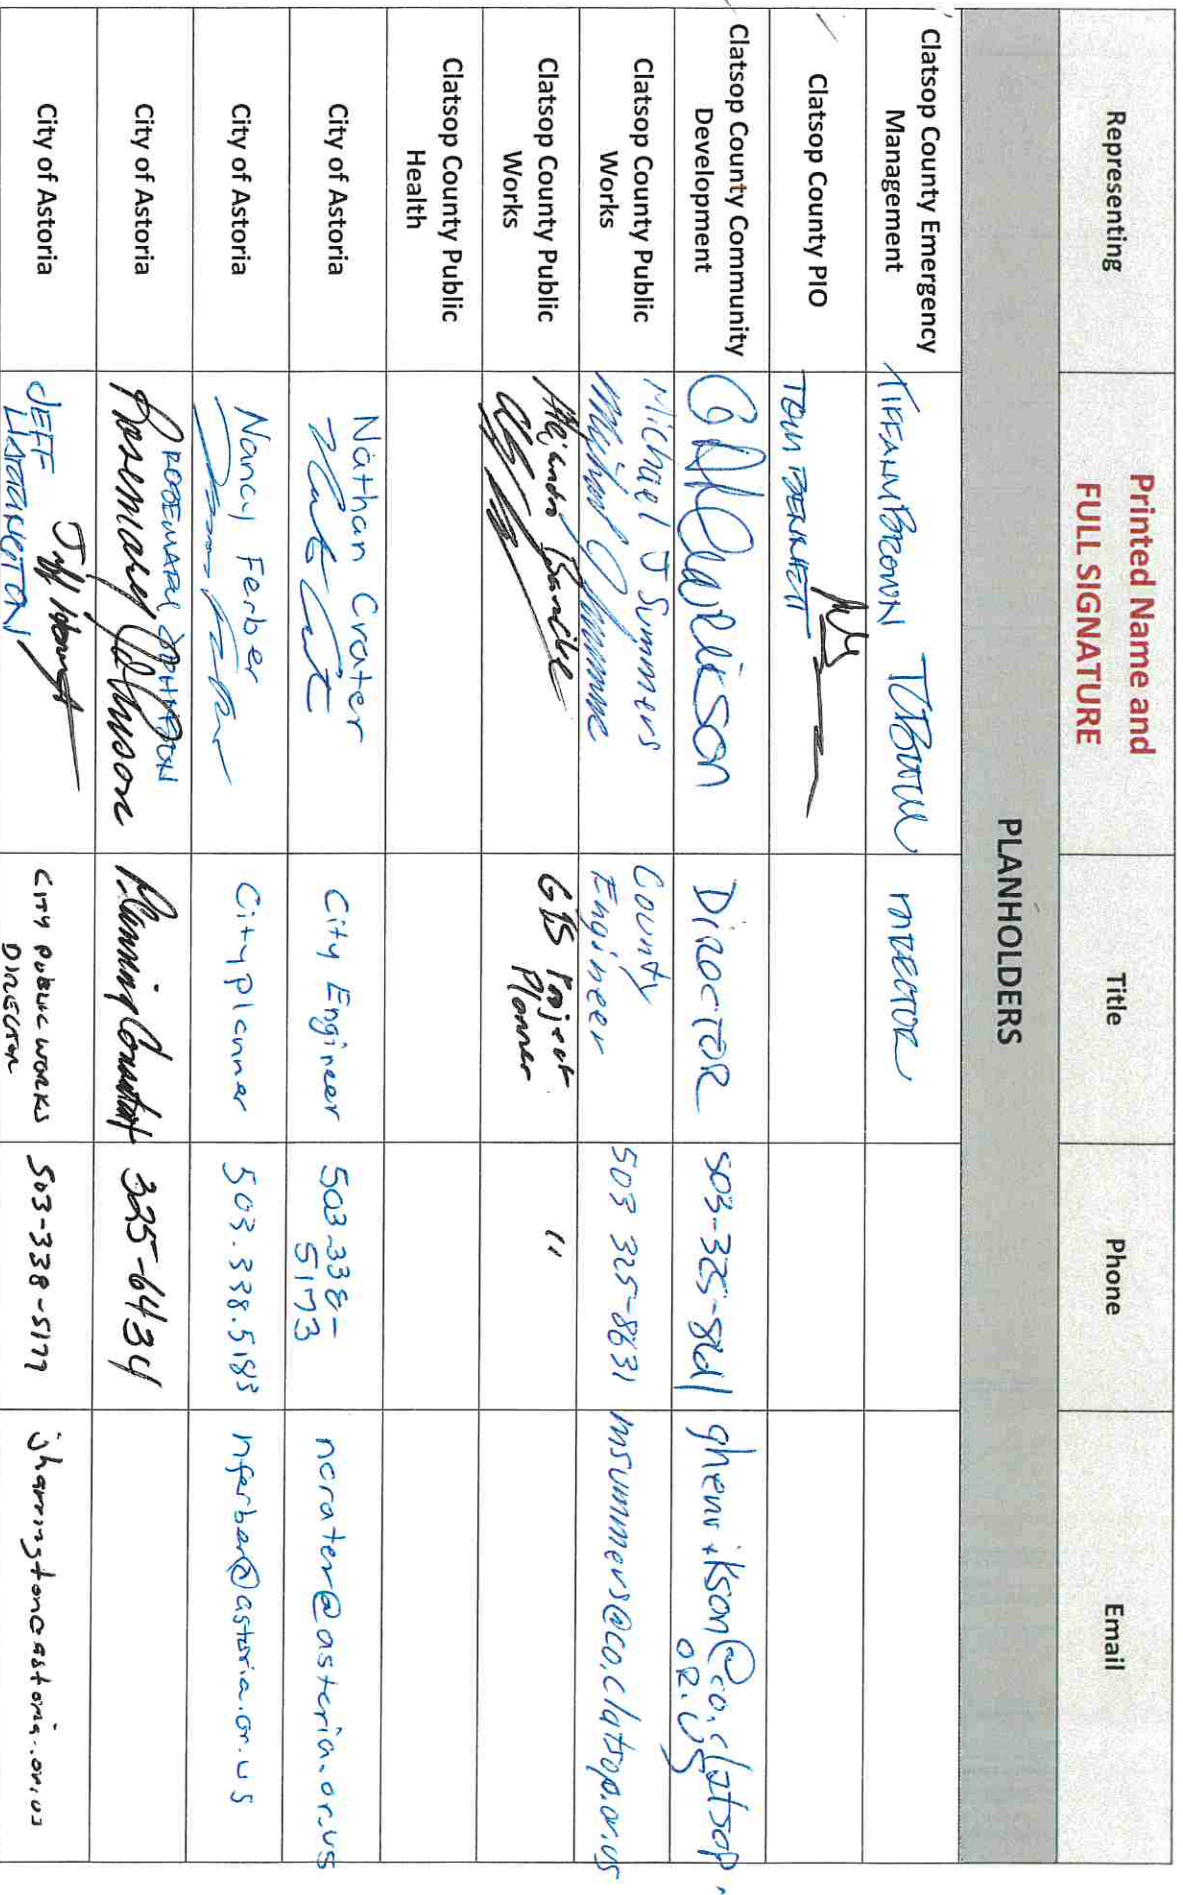 Representing
Printed Name and
FULL SIGNATURE
Title
Phone
Email
PLANHOLDERS
Clatsop County Emergency
Management
TIFFANY BROWN
DIRECTOR
Clatsop County PIO
TOM BENNETT
Clatsop County Community
Development
DIRECTOR
503-325-8611
ghenrikson@co.clatsop.
OR.US
Clatsop County Public
Works
Michael J Summers
County
Engineer
503 325-8631
msummers@co.clatsop.or.us
Clatsop County Public
Works
Alejandro
GIS Project
Planner
"
Clatsop County Public
Health
City of Astoria
Nathan Crater
City Engineer
503-338-
5173
ncrater@astoria.or.us
City of Astoria
Nancy Ferber
City planner
503.338.5183
nferber@astoria.or.us
City of Astoria
ROSEMARY JOHNSON
Rosemary Johnson
Planning Consultant
325-6434
City of Astoria
JEFF
HARRINGTON
CITY PUBLIC WORKS
DIRECTOR
503-338-5177
jharrington@astoria.or.us